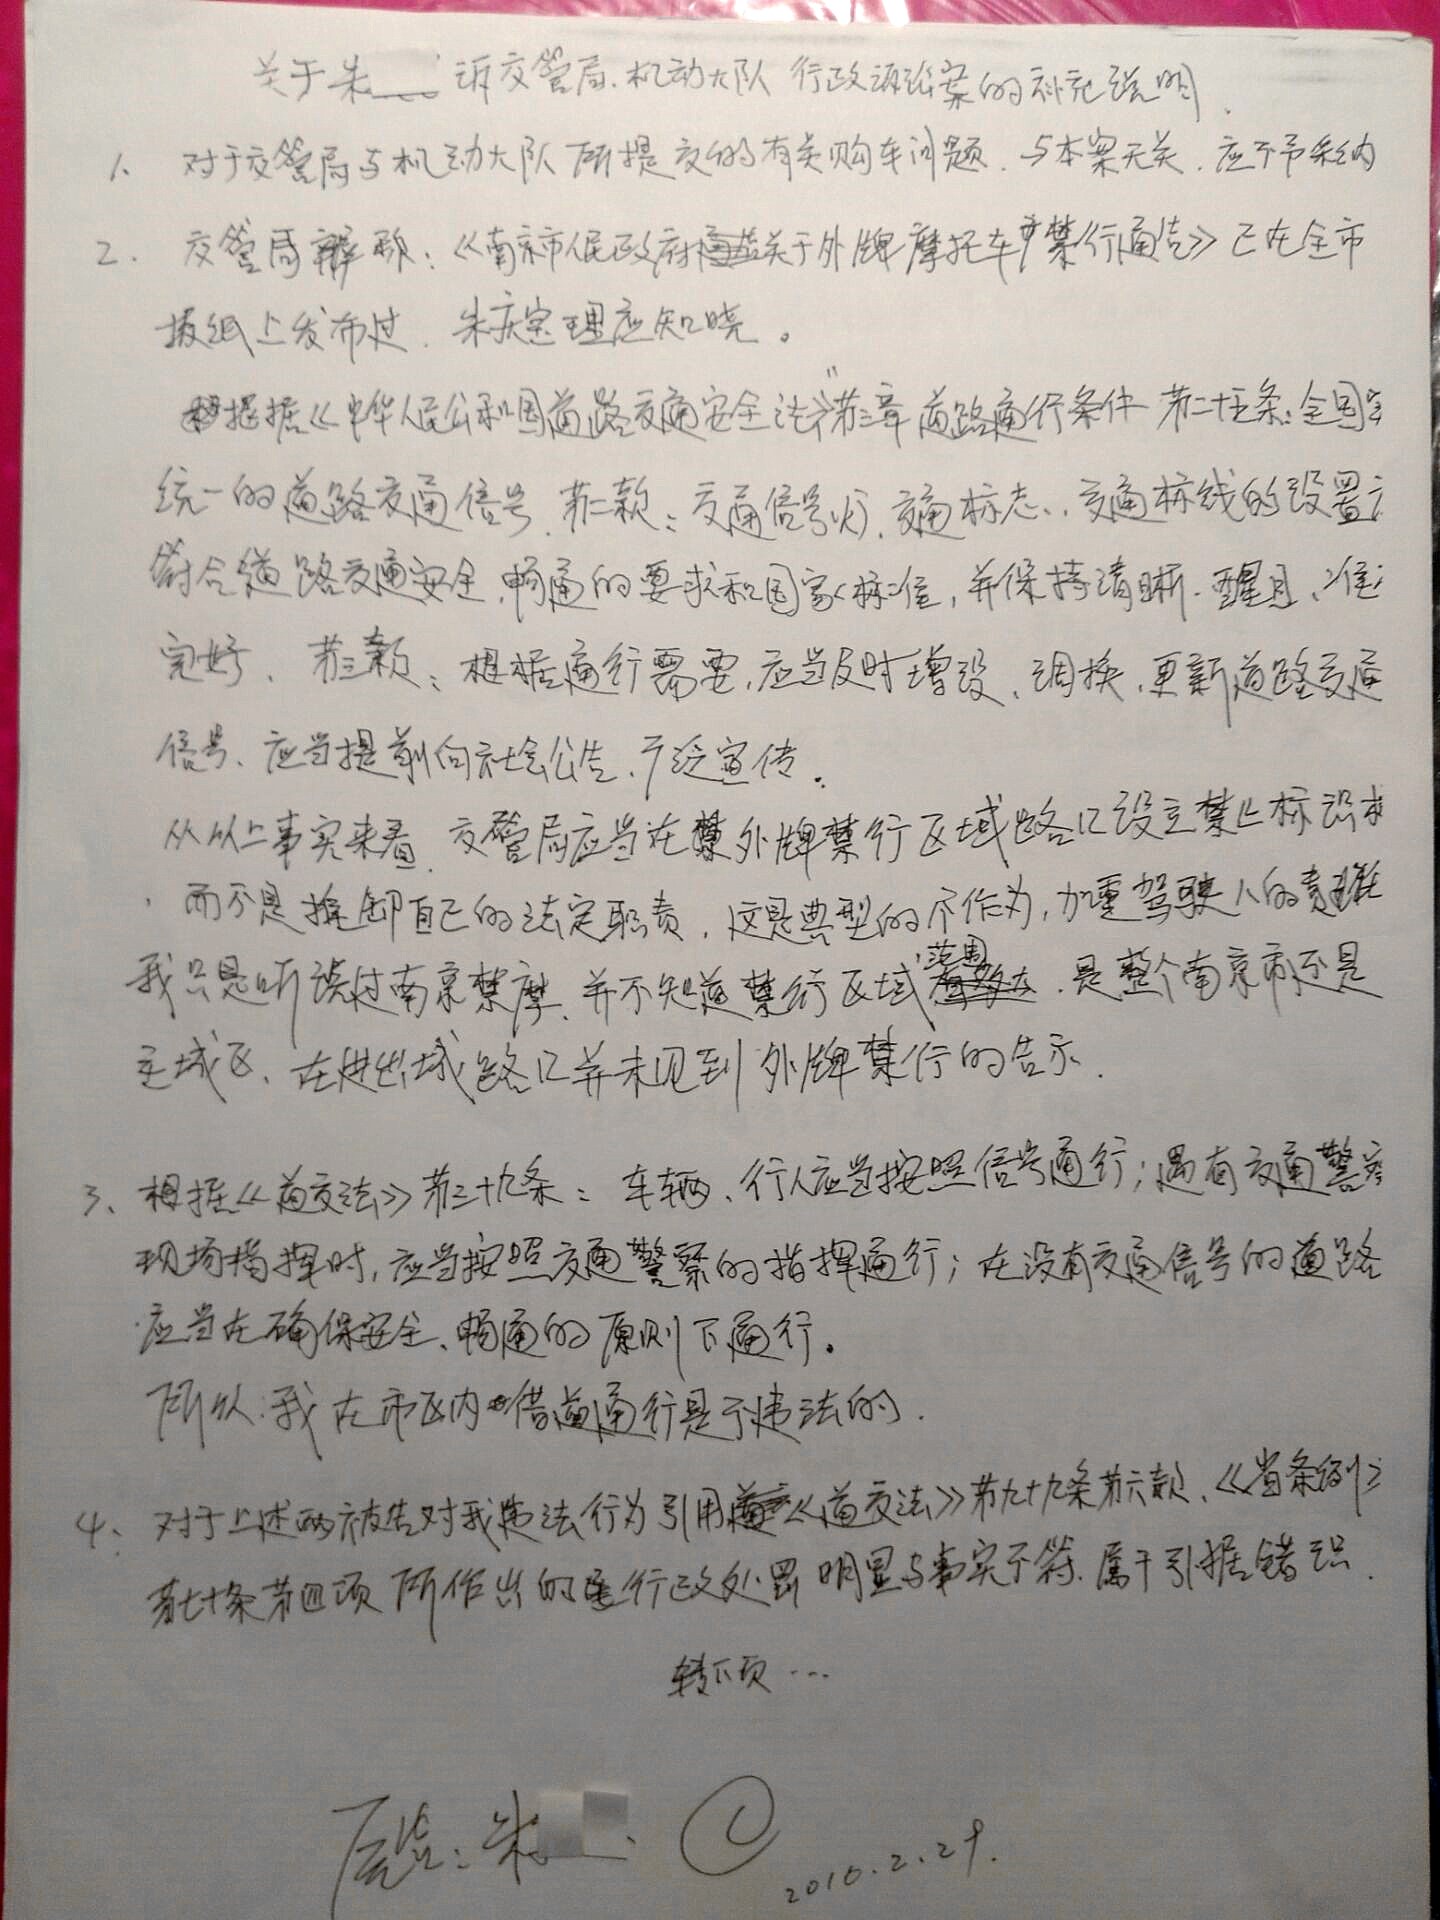 关于朱 诉交管局、机动大队 行政诉讼案的补充说明.
1、对于交管局与机动大队所提交的有关购车问题、与本案无关、应不予采纳
2、交管局辩称:《南京市人民政府关于外牌摩托车禁行通告》已在全市
报纸上发布过、朱庆宝理应知晓。
根据《中华人民公和国道路交通安全法》第三章道路通行条件 第二十五条:全国实
统一的道路交通信号、第二款:交通信号灯、交通标志、交通标线的设置
符合道路交通安全、畅通的要求和国家标准,并保持清晰、醒目、准
完好、第三款:根据通行需要,应当及时增设、调换、更新道路交通
信号、应当提前向社会公告、广泛宣传.
从以上事实来看、交管局应当在外牌禁行区域路口设立禁止标识
、而不是推卸自己的法定职责、这是典型的不作为,加重驾驶人的责任
我只是听说过南京禁摩、并不知道禁行区域范围、是整个南京市还是
主城区、在进出城路口并未见到外牌禁行的告示.
3、根据《道交法》第三十九条:车辆、行人应当按照信号通行;遇有交通警察
现场指挥时,应当按照交通警察的指挥通行;在没有交通信号的道路
应当在确保安全、畅通的原则下通行。
所以:我在市区内借道通行是不违法的.
4、对于上述两被告对我违法行为引用《道交法》第九十九条第六款、《省条例》
第七十条第四项 所作出的行政处罚 明显与事实不符、属于引据错误.
转下页…
原告:朱
2010.2.29.